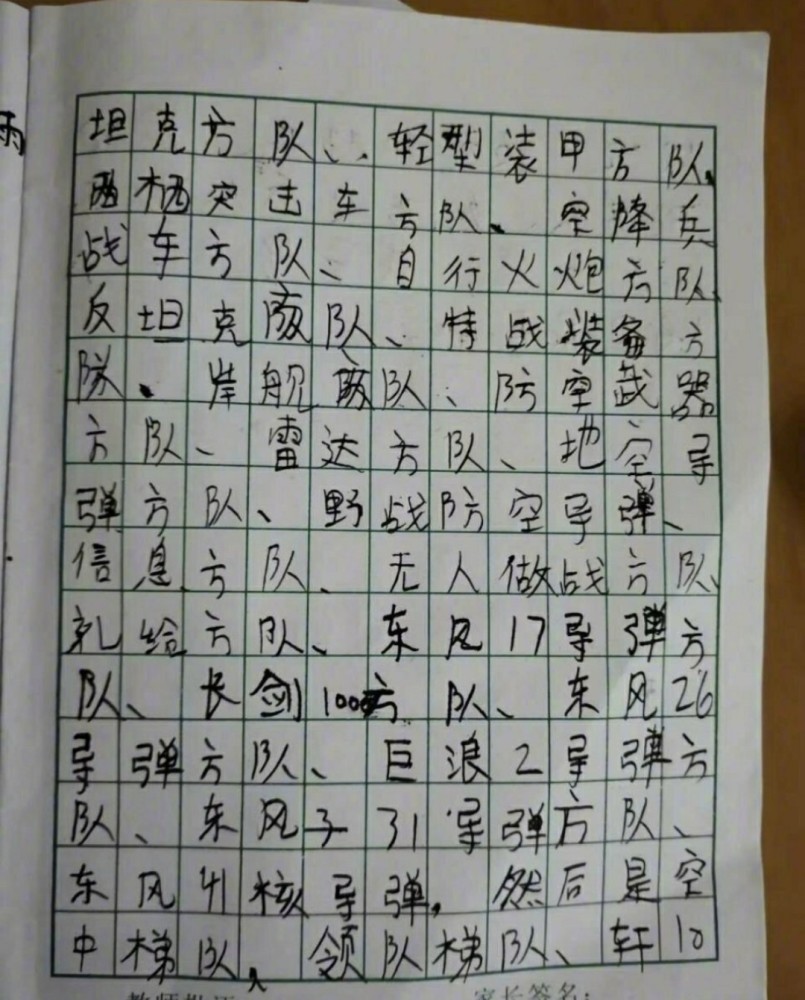 坦克方队、轻型装甲方队、
两栖突击车方队、空降兵
战车方队、自行火炮方队、
反坦克方队、特战装备方
队、岸舰方队、防空武器
方队、雷达方队、地空导
弹方队、野战防空导弹、
信息方队、无人做战方队、
补给方队、东风17导弹方
队、长剑100方队、东风26
导弹方队、巨浪2导弹方
队、东风31导弹方队、
东风41核导弹，然后是空
中梯队，领队梯队、轩10
家长签名：